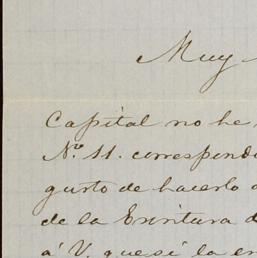 Muy
Capital no he
N.º 11. correspondi
gusto de hacerlo
de la Escritura d
á V. que si la en